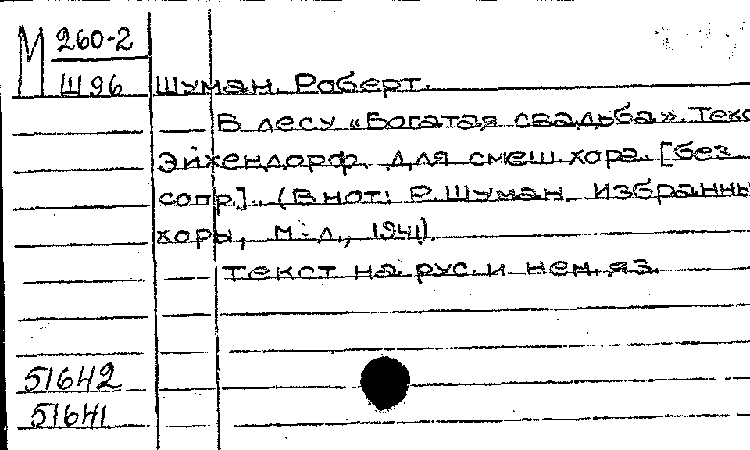 М 260-2
Ш96
Шуман, Роберт.
В лесу «Богатая свадьба». Текс
Эйхендорф. Для смеш. хора. [без
сопр.]. (В нот: Р. Шуман. Избранны
хоры, М.-Л., 1941).
Текст на рус. и нем. яз.
51642
51641